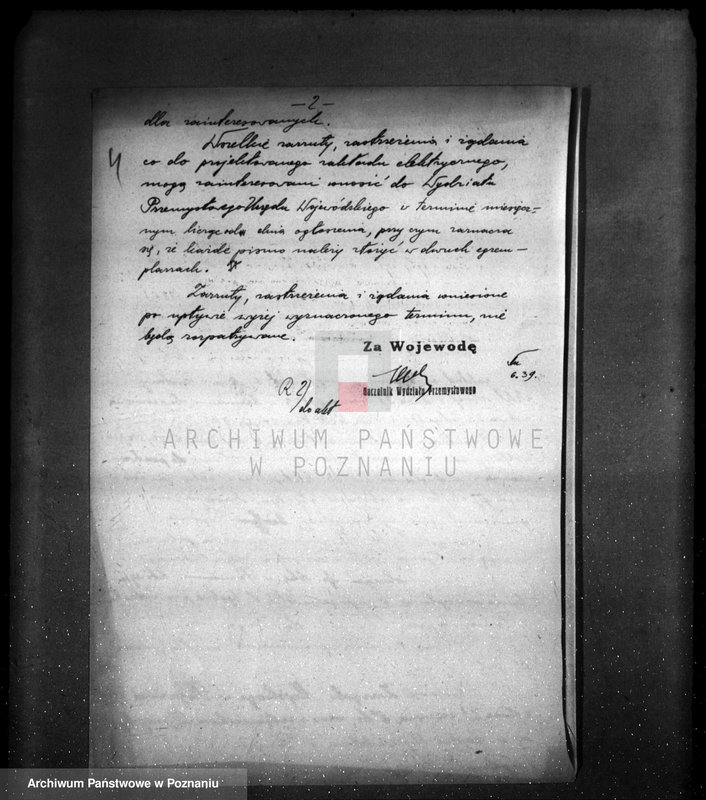 — 2 —
dla zainteresowanych.
Wszelkie zarzuty, zastrzeżenia i żądania
co do projektowanego zakładu elektrycznego,
mogą zainteresowani wnosić do Wydziału
Przemysłowego Urzędu Wojewódzkiego w terminie miesięcz-
nym licząc od dnia ogłoszenia, przy czym zaznacza
się, że każde pismo należy złożyć w dwuch egzem-
plarzach.
Zarzuty, zastrzeżenia i żądania wniesione
po upływie wyżej wyznaczonego terminu, nie
będą rozpatrywane.
Za Wojewodę
6.39.
Naczelnik Wydziału Przemysłowego
R 2/
do akt
ARCHIWUM PAŃSTWOWE
W POZNANIU
Archiwum Państwowe w Poznaniu